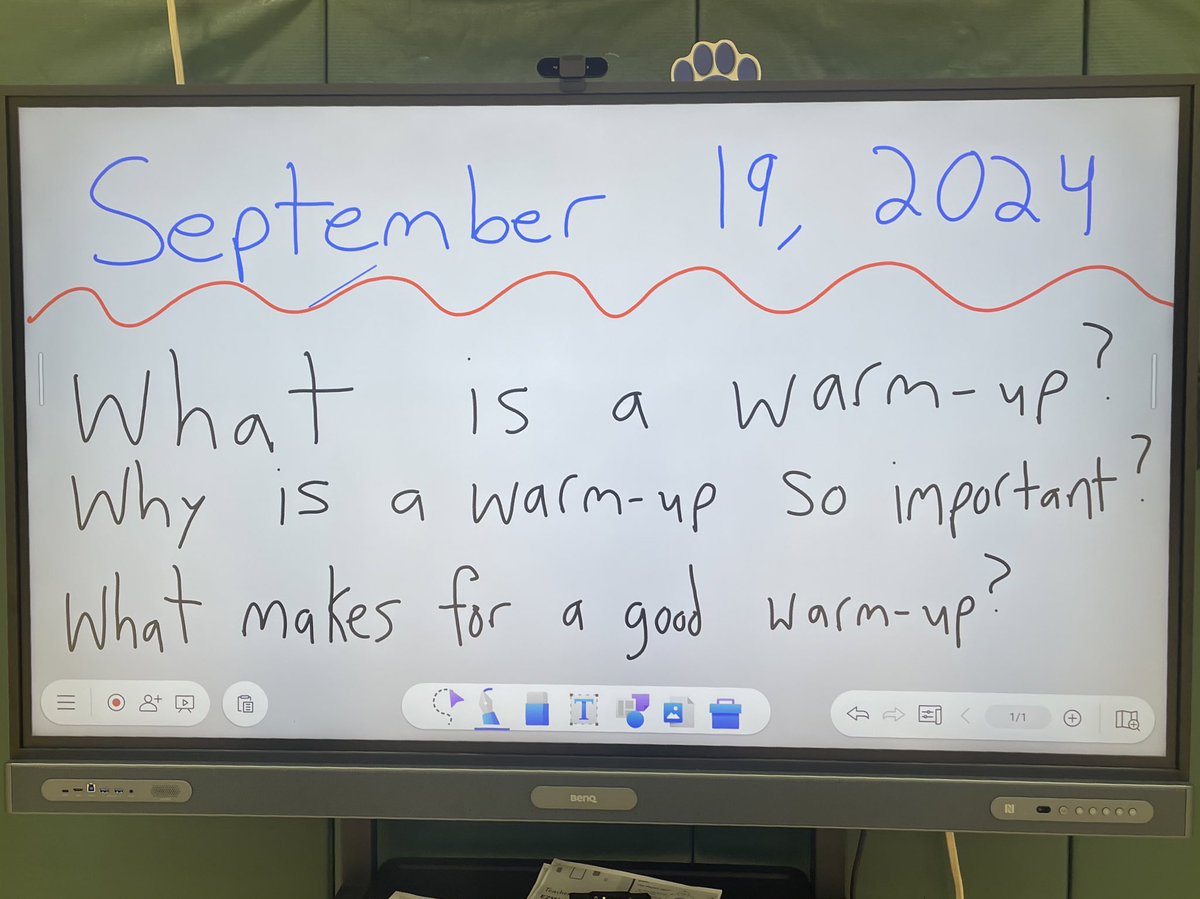 September 19, 2024
What is a warm-up?
Why is a warm-up so important?
What makes for a good warm-up?
T
1/1
BenQ